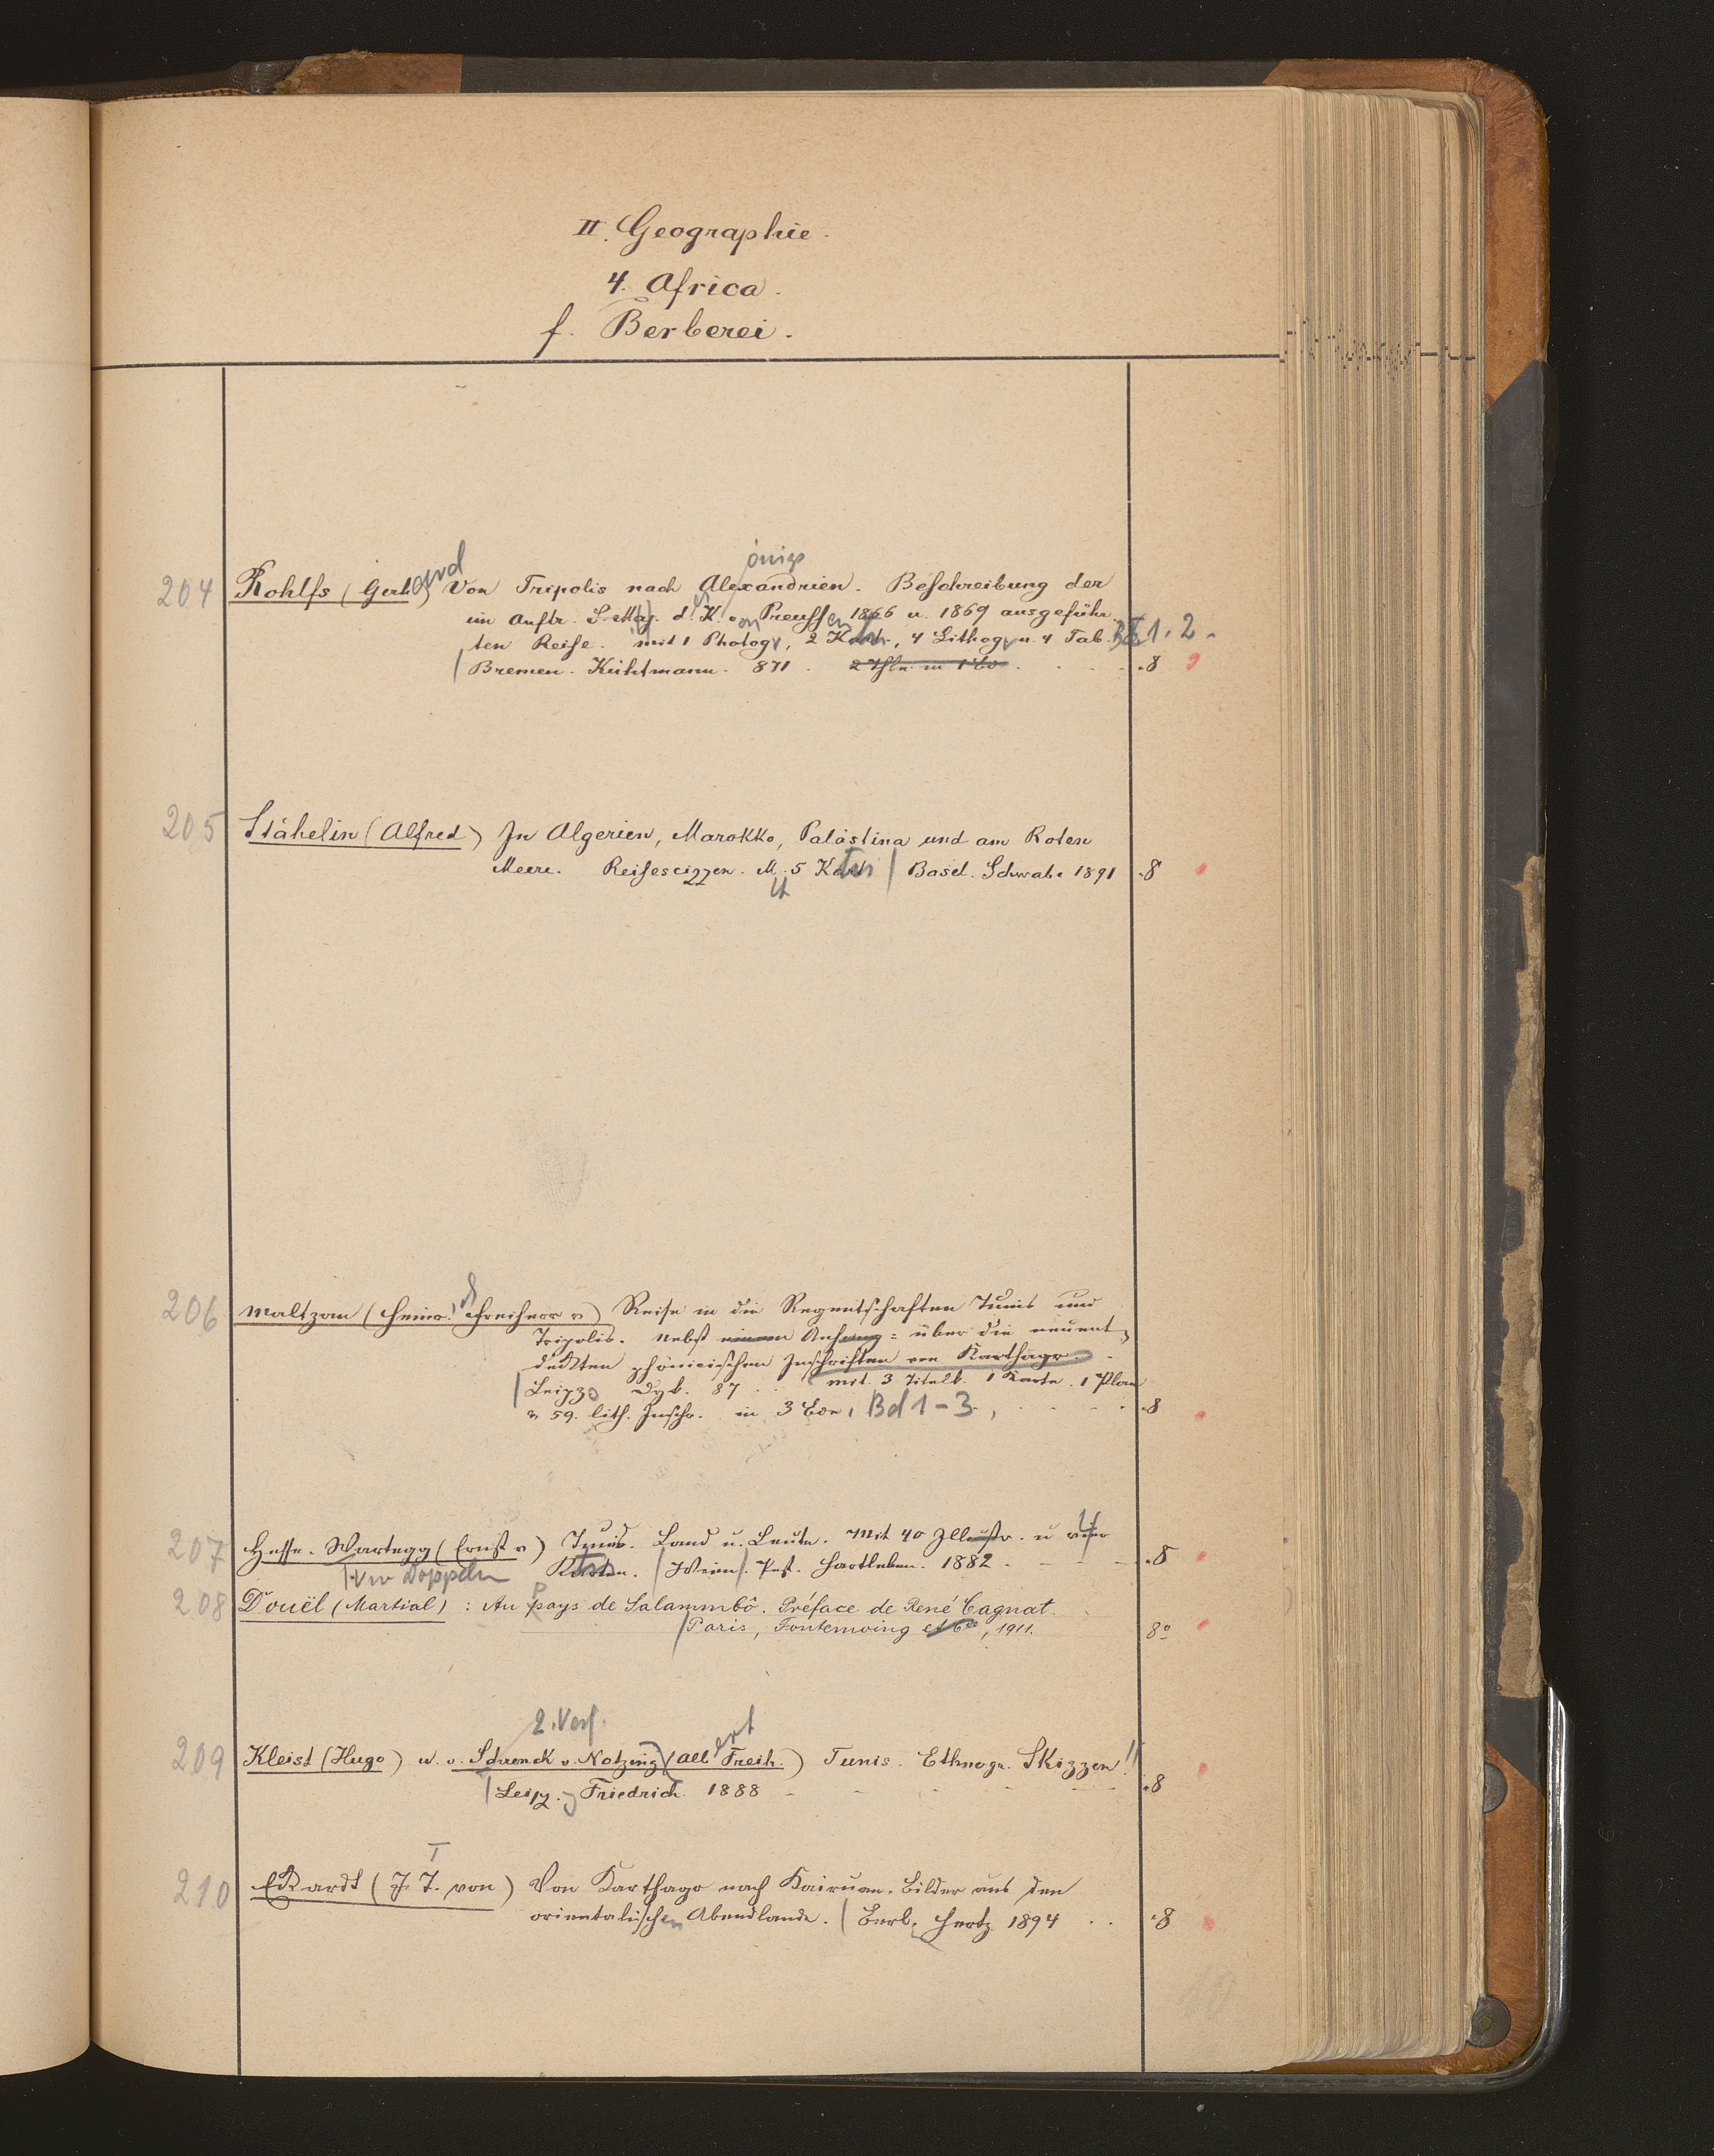 II. Geographie.
4. Africa.
f. Berberei.
204 Rohlfs (Gerh.ard) Von Tripolis nach Alexandrien. Beschreibung der
im Auftr. S. Maj. d. K.önigs von Preussen 1866 u. 1869 ausgeführ-
ten Reise. mit 1 Photogr, 2 Kart., 4 Lithogr u. 4 Tab. Bd 1. 2.
Bremen. Kühtmann. 871. 2 Thle. in 1 Bd .8
205 Stähelin (Alfred) In Algerien, Marokko, Palästina und am Roten
Meere. Reisescizzen. M. 5 Karten Basel. Schwabe 1891 .8
206 Maltzan (Heinr. Freiherr v.) Reise in die Regentschaften Tunis und
Tripolis. Nebst einem Anhang: über die neuent-
deckten phönicischen Inschriften von Karthago.
Leipz Dyk. 87 mit. 3 Titelb. 1 Karte. 1 Plan
u 59. lith. Inschr. in 3 Bdn, Bd 1-3, .8
207 Hesse-Wartegg (Ernst v) Tunis. Land u. Leute. Mit 40 Illustr. u vier 4
Karten. Wien. Pest. Hartleben. 1882 .8
Doppeln
208 Douël (Martial): Au pays de Salammbô. Préface de René Cagnat.
Paris, Fontemoing et Cie, 1911. 8°
2. Verf.
209 Kleist (Hugo) u. v. Schrenck v. Notzing (Albert Freih.) Tunis. Ethnogr. Skizzen!!
Leipz. Friedrich. 1888 .8
210 Eckardt (J. I. von) Von Karthago nach Kairuan. Bilder aus dem
orientalischen Abendlande. Berl. Hertz 1894 .. .8